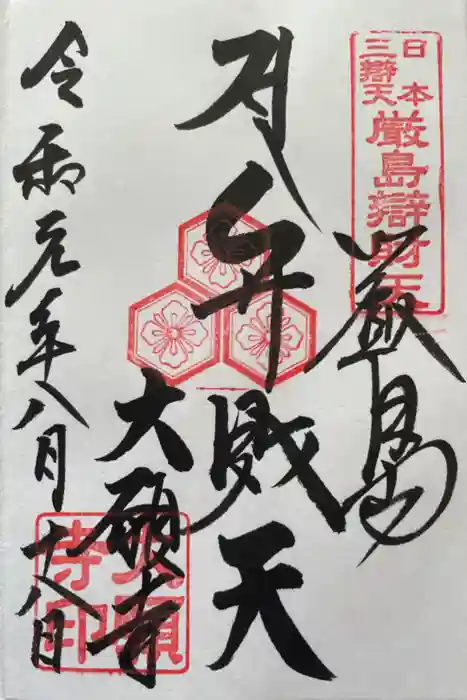 日本
三辯天
厳島辯財天
厳島
弁財天
大願寺
令和元年八月十八日
大願
寺印